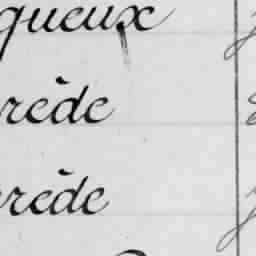 queux
rède
rède